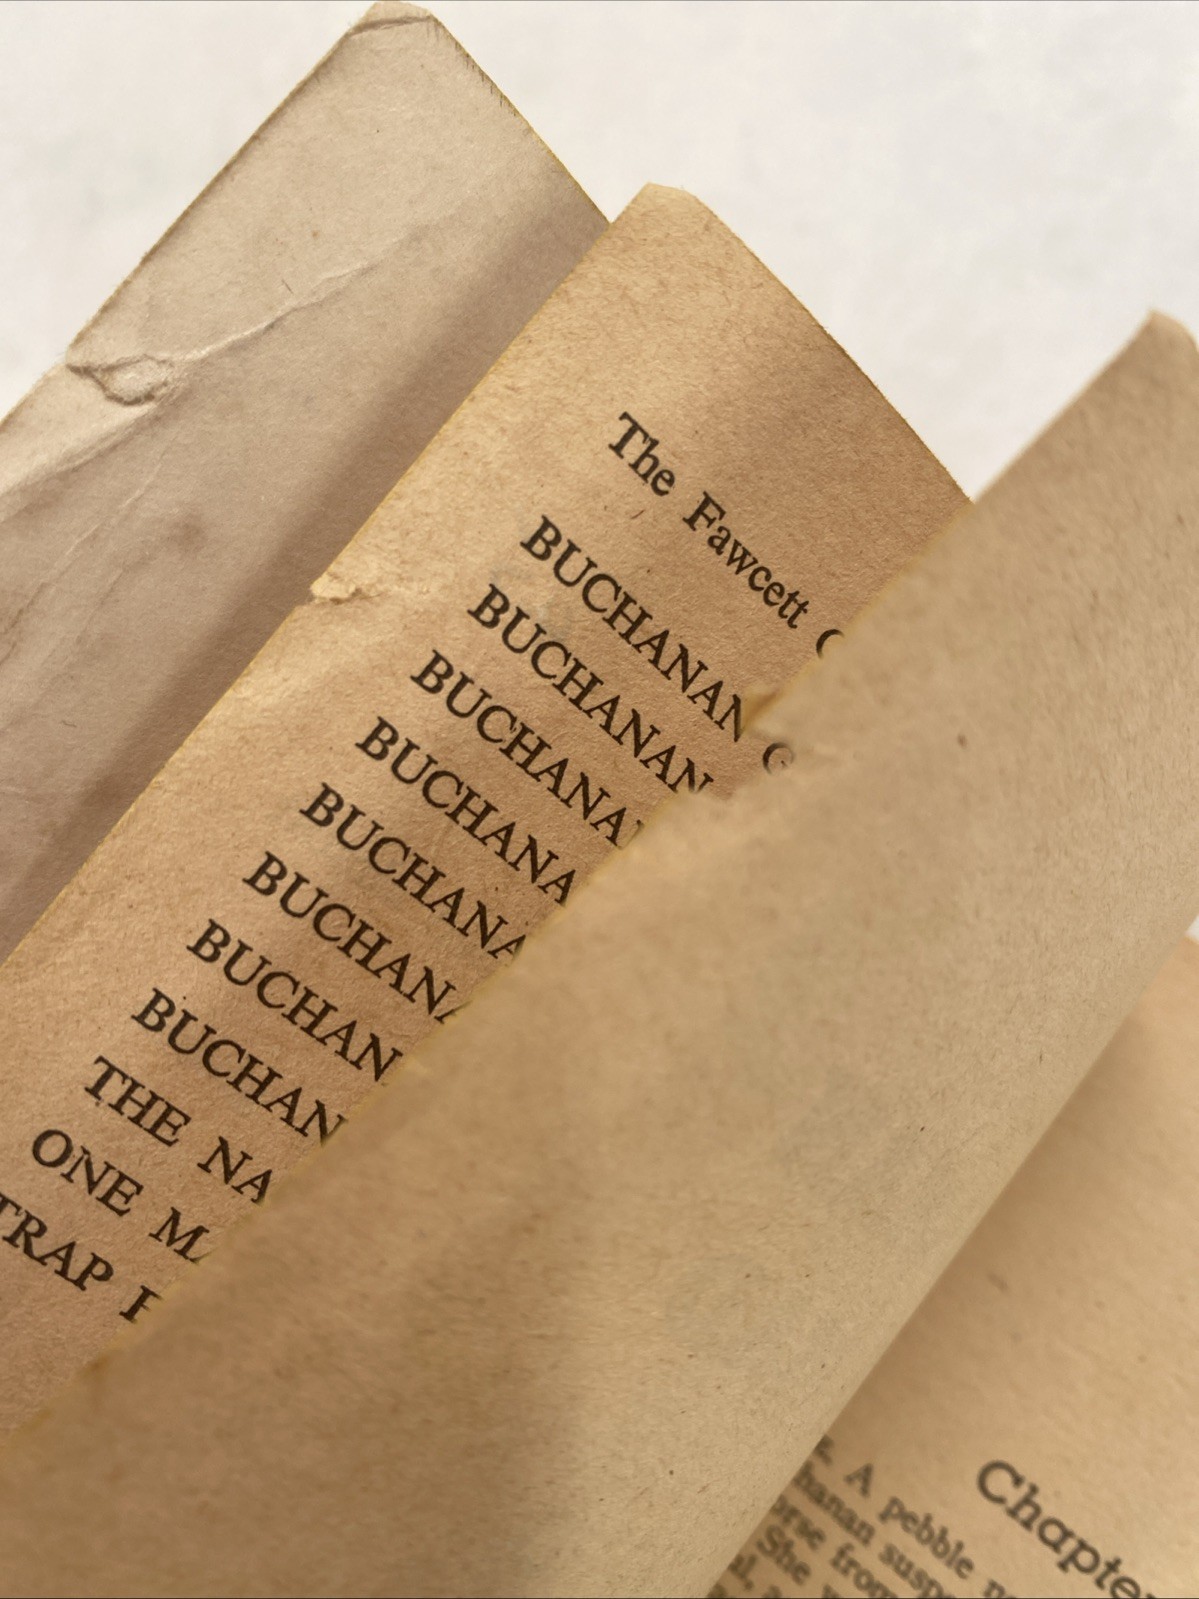 The Fawcett
BUCHANAN G
BUCHANAN
BUCHANAN
BUCHANA
BUCHANA
BUCHANA
BUCHAN
BUCHAN
THE NA
ONE MA
TRAP F
Chapter
A pebble
hanan suspe
orse from
She w